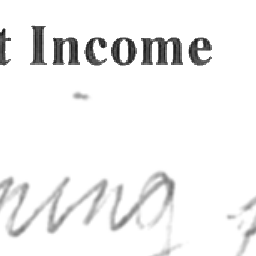 t Income
ning